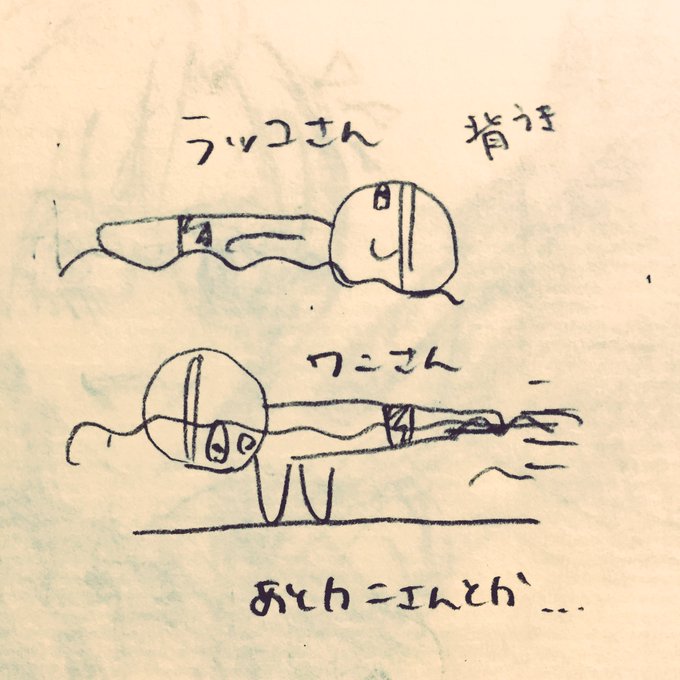 ラッコさん
背うき
ワニさん
あとカニさんとか...